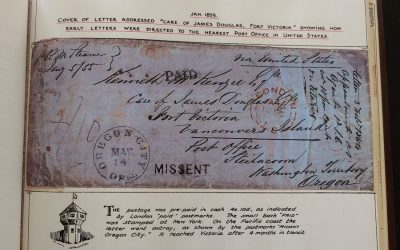 JAN 1855.
COVER OF LETTER ADDRESSED "CARE OF JAMES DOUGLAS, FORT VICTORIA" SHOWING HOW
EARLY LETTERS WERE DIRECTED TO THE NEAREST POST OFFICE IN UNITED STATES.
Steamer
via United States
Jany 5/55
PAID
Kenneth
Care of James Douglas
Fort Victoria
Vancouver's Island
Post Office
Steilacoom
Washington Territory
Oregon
OREGON CITY
MAR
14
OREG.
MISSENT
THE POSTAGE WAS PRE-PAID IN CASH 4s. 10d., AS INDICATED
BY LONDON "PAID" POSTMARKS. THE SMALL BLACK "PAID"
WAS STAMPED AT NEW YORK. ON THE PACIFIC COAST THE
LETTER WENT ASTRAY, AS SHOWN BY THE POSTMARKS "MISSENT
OREGON CITY." IT REACHED VICTORIA AFTER 4 MONTHS IN TRANSIT.